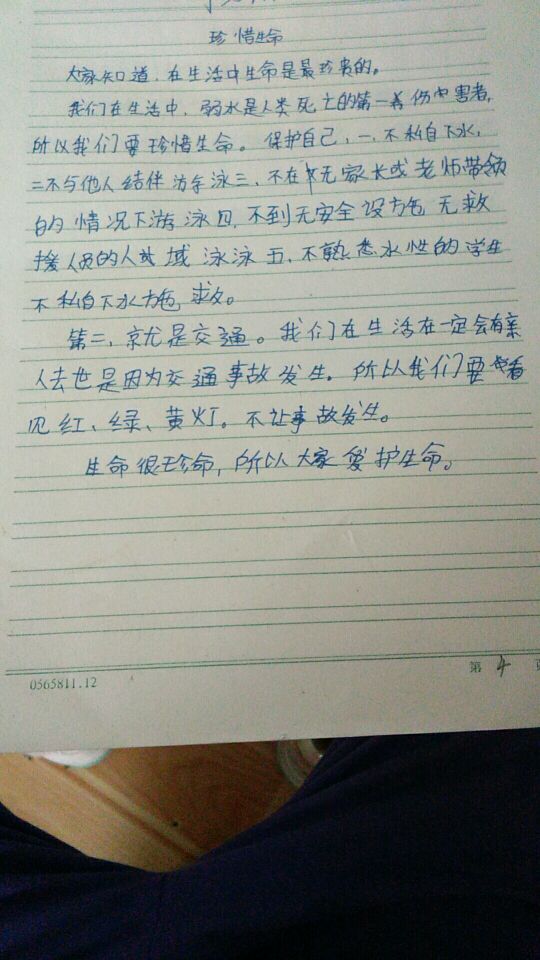 珍惜生命
大家知道,在生活中生命是最珍贵的。
我们在生活中,弱水是人类死亡的第一伤害者,
所以我们要珍惜生命。保护自己,一、不私自下水,
二不与他人结伴游泳三、不在无家长或老师带领
的情况下游泳四、不到无安全设施无救
援人员的人域泳泳五、不熟悉水性的学生
不私自下水施救。
第二,就是交通。我们在生活在一定会有亲
人去世是因为交通事故发生。所以我们要看
见红、绿、黄灯。不让事故发生。
生命很珍命,所以大家爱护生命。
0565811.12
第4